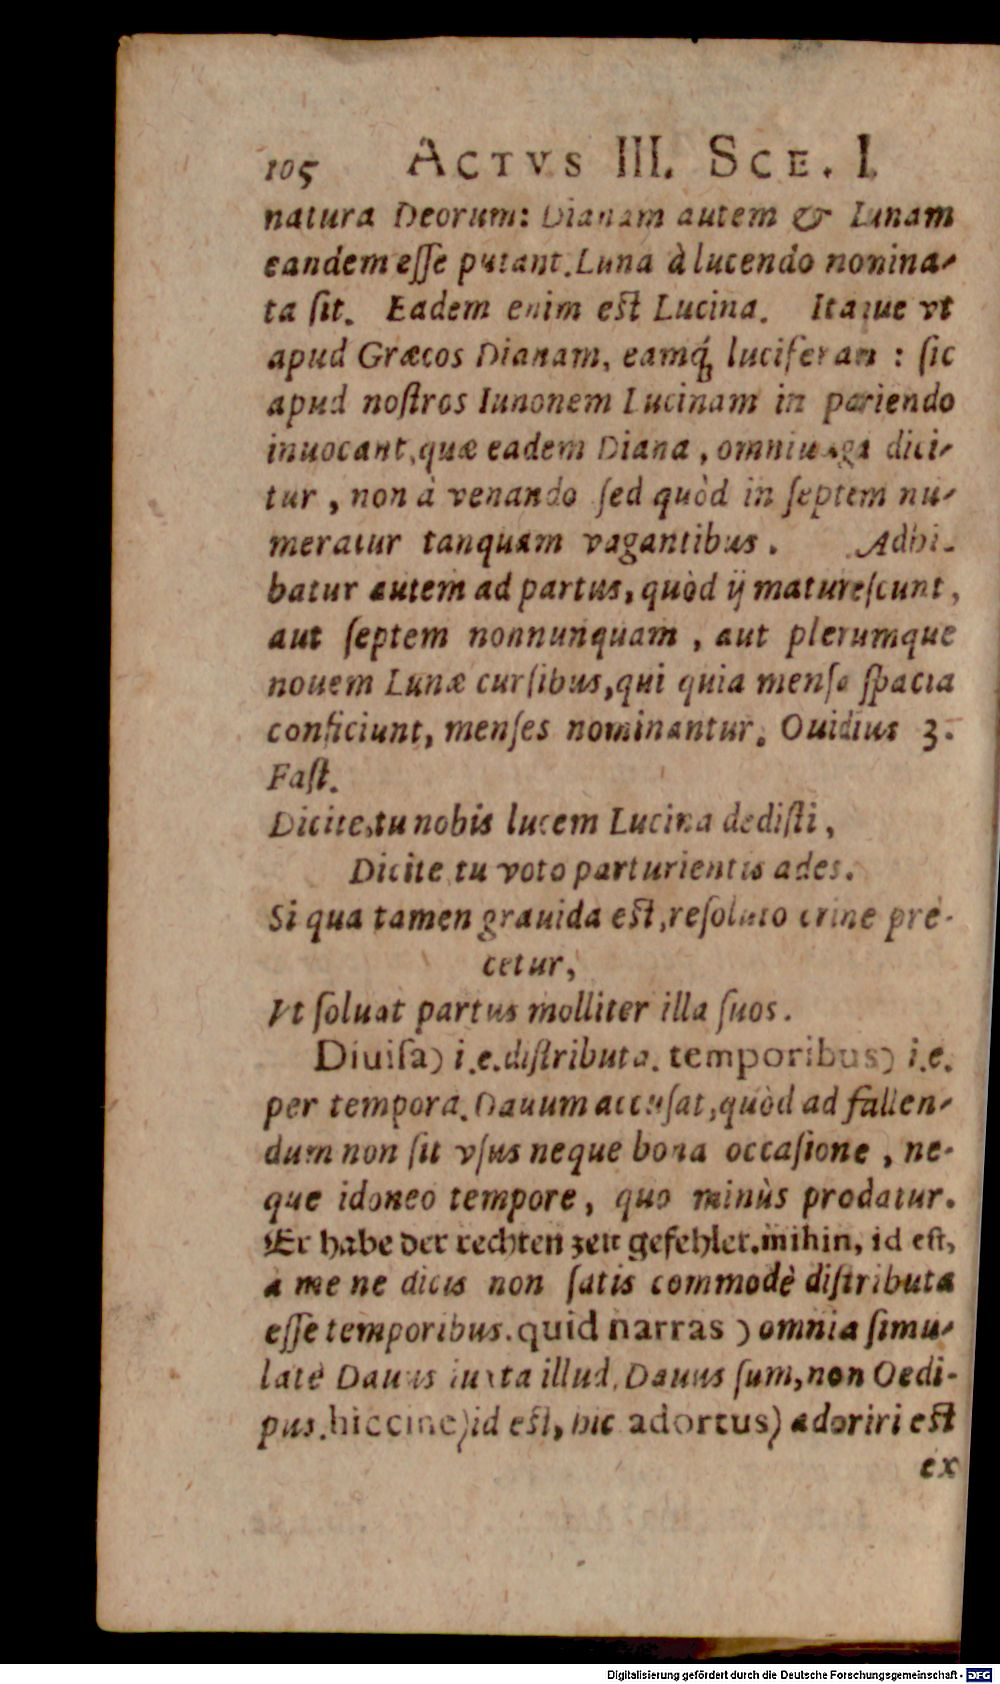 105 ACTVS III. SCE. I.
natura Deorum: Dianam autem & Lunam
eandem eſſe putant. Luna à lucendo nomina-
ta ſit. Eadem enim eſt Lucina. Itaque vt
apud Græcos Dianam, eamq́; luciferam : ſic
apud noſtros Iunonem Lucinam in pariendo
inuocant, quæ eadem Diana, omniuaga dici-
tur, non à venando ſed quòd in ſeptem nu-
meratur tanquam vagantibus. Adhi-
batur autem ad partus, quòd ij matureſcunt,
aut ſeptem nonnunquam, aut plerumque
nouem Lunæ curſibus, qui quia menſa ſpacia
conficiunt, menſes nominantur. Ouidius 3.
Faſt.
Dicite, tu nobis lucem Lucina dediſti,
Dicite tu voto parturientis ades.
Si qua tamen grauida eſt, reſoluto crine pre-
cetur,
Vt ſoluat partus molliter illa ſuos.
Diuiſa) i.e. diſtributa. temporibus) i.e.
per tempora. Dauum accuſat, quòd ad fallen-
dum non ſit vſus neque bona occaſione, ne-
que idoneo tempore, quo minùs prodatur.
Er habe der rechten zeit gefehlet. mihin, id eſt,
a me ne dicis non ſatis commodè diſtributa
eſſe temporibus. quid narras ) omnia ſimu-
latè Dauus iuxta illud, Dauus ſum, non Oedi-
pus. hiccine) id eſt, hic adortus) adoriri eſt
ex
Digitalisierung gefördert durch die Deutsche Forschungsgemeinschaft - DFG